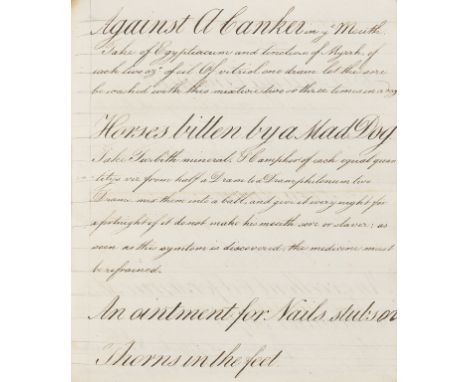 Against A Canker in yͤ Mouth
Take of Egyptiacum and tincture of Myrrh of
each two ozˢ of oil Of vitriol one dram let the sore
be washed with this mixture two or three times in a day
Horses bitten by a Mad Dog
Take Turbith mineral, & Camphor of each equal quan
titys viz from half a Dram to a Dram philonium two
Drams mix them into a ball, and give it every night for
a fortnight if it do not make his mouth sore or slaver: as
soon as this symtom is discovered, the medicine must
be refrained.
An ointment for Nails, stubs or
Thorns in the feet